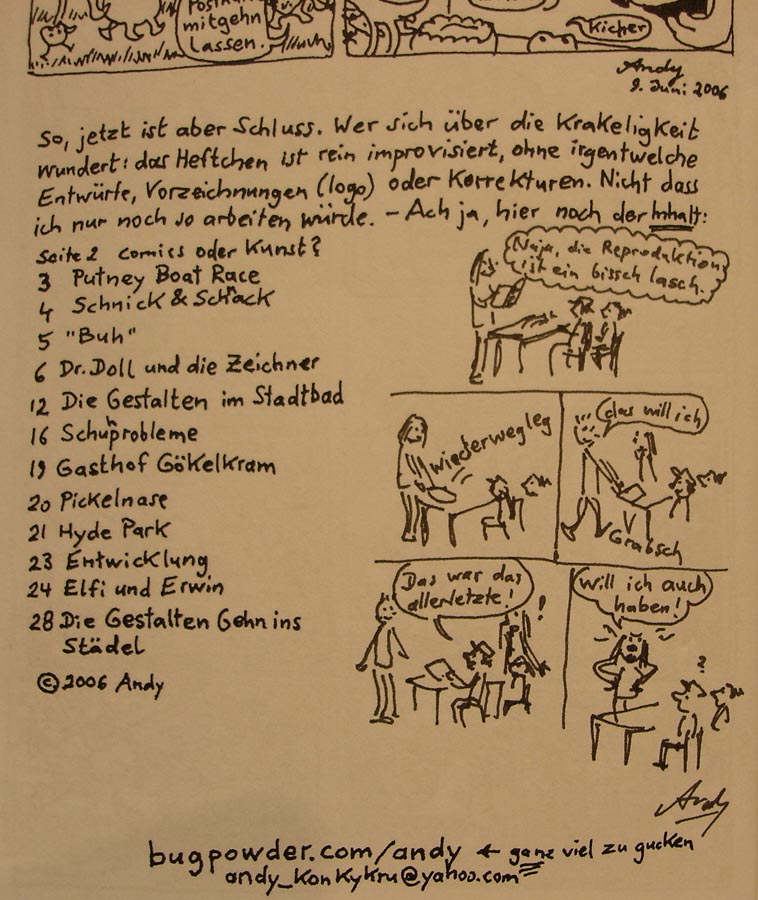 mitgehn
lassen.
Kicher
Andy
9. Juni 2006
So, jetzt ist aber Schluss. Wer sich über die Krakeligkeit
wundert: das Heftchen ist rein improvisiert, ohne irgentwelche
Entwürfe, Vorzeichnungen (logo) oder Korrekturen. Nicht dass
ich nur noch so arbeiten würde. – Ach ja, hier noch der Inhalt:
Seite 2 Comics oder Kunst?
3 Putney Boat Race
4 Schnick & Schnack
5 "Buh"
6 Dr. Doll und die Zeichner
12 Die Gestalten im Stadtbad
16 Schuhprobleme
19 Gasthof Gökelkram
20 Pickelnase
21 Hyde Park
23 Entwicklung
24 Elfi und Erwin
28 Die Gestalten Gehn ins
Städel
© 2006 Andy
Naja, die Reproduktion
ist ein bissch lasch.
wiederwegleg
das will ich
Grabsch
Das war das
allerletzte!
!
Will ich auch
haben!
?
Andy
bugpowder.com/andy ← ganz viel zu gucken
andy_konkykru@yahoo.com